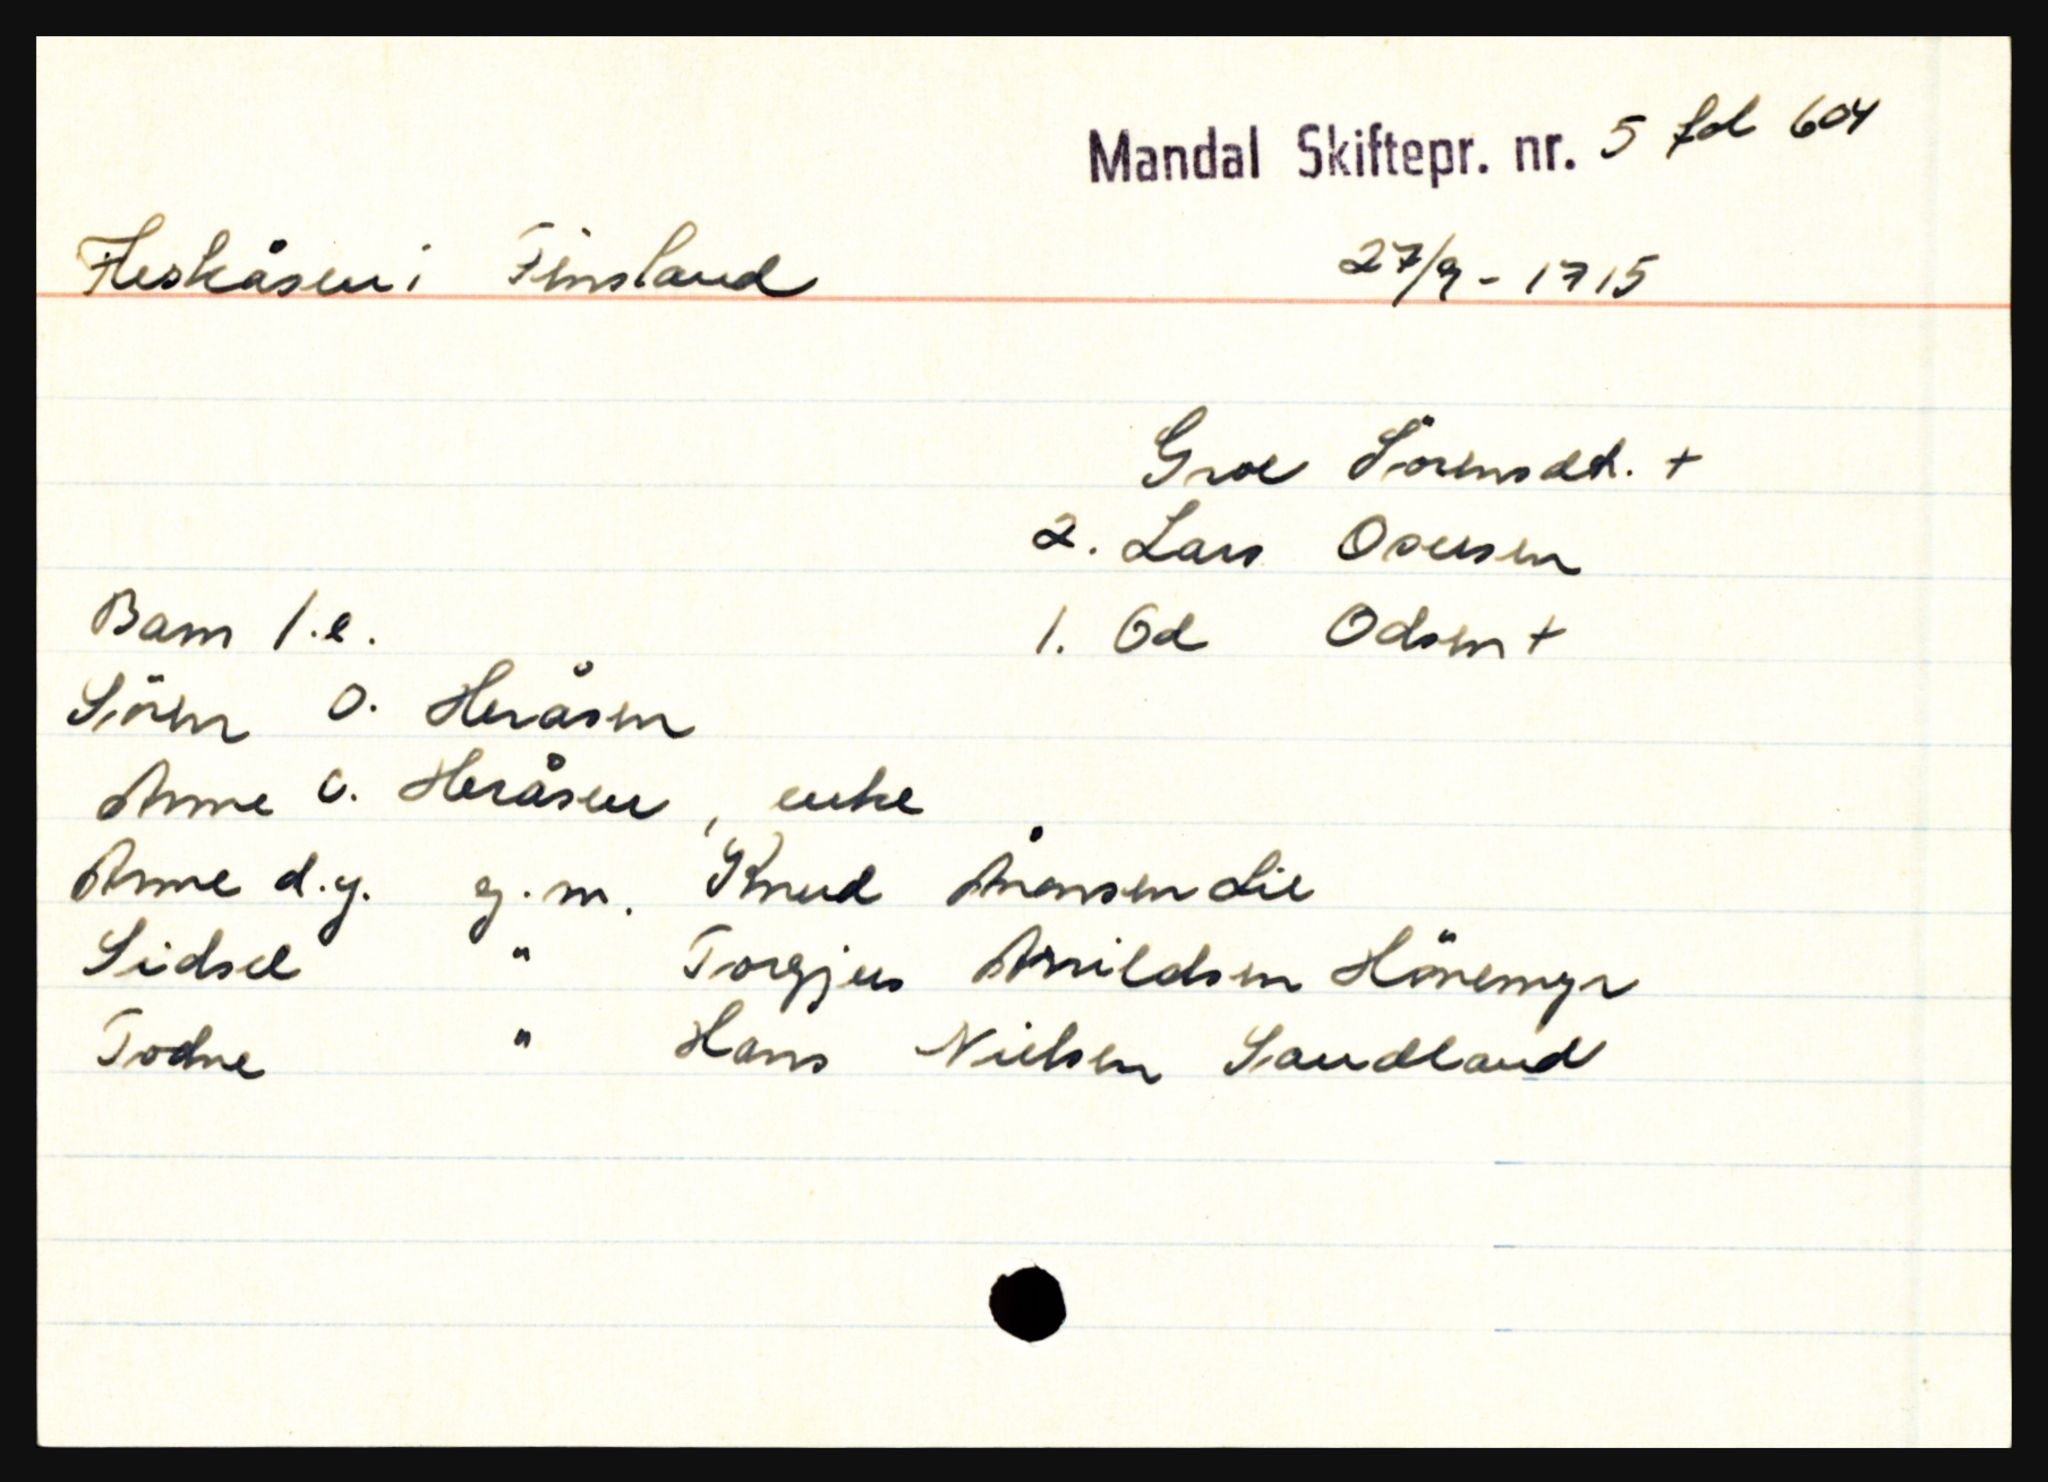 Mandal Skiftepr. nr. 5 fol 604
Fleskåsen i Finsland 27/9 - 1715
Groe Sörensdt. +
2. Lars Osensen
Barn 1.e. 1. Od Odsen +
Sören O. Heråsen
Anne O. Heråsen, enke
Anne d.y. g.m. Knud Ånonsen Lie
Sidsel " Torgjus Arnildsen Hönemyr
Todne " Hans Nielsen Saudland